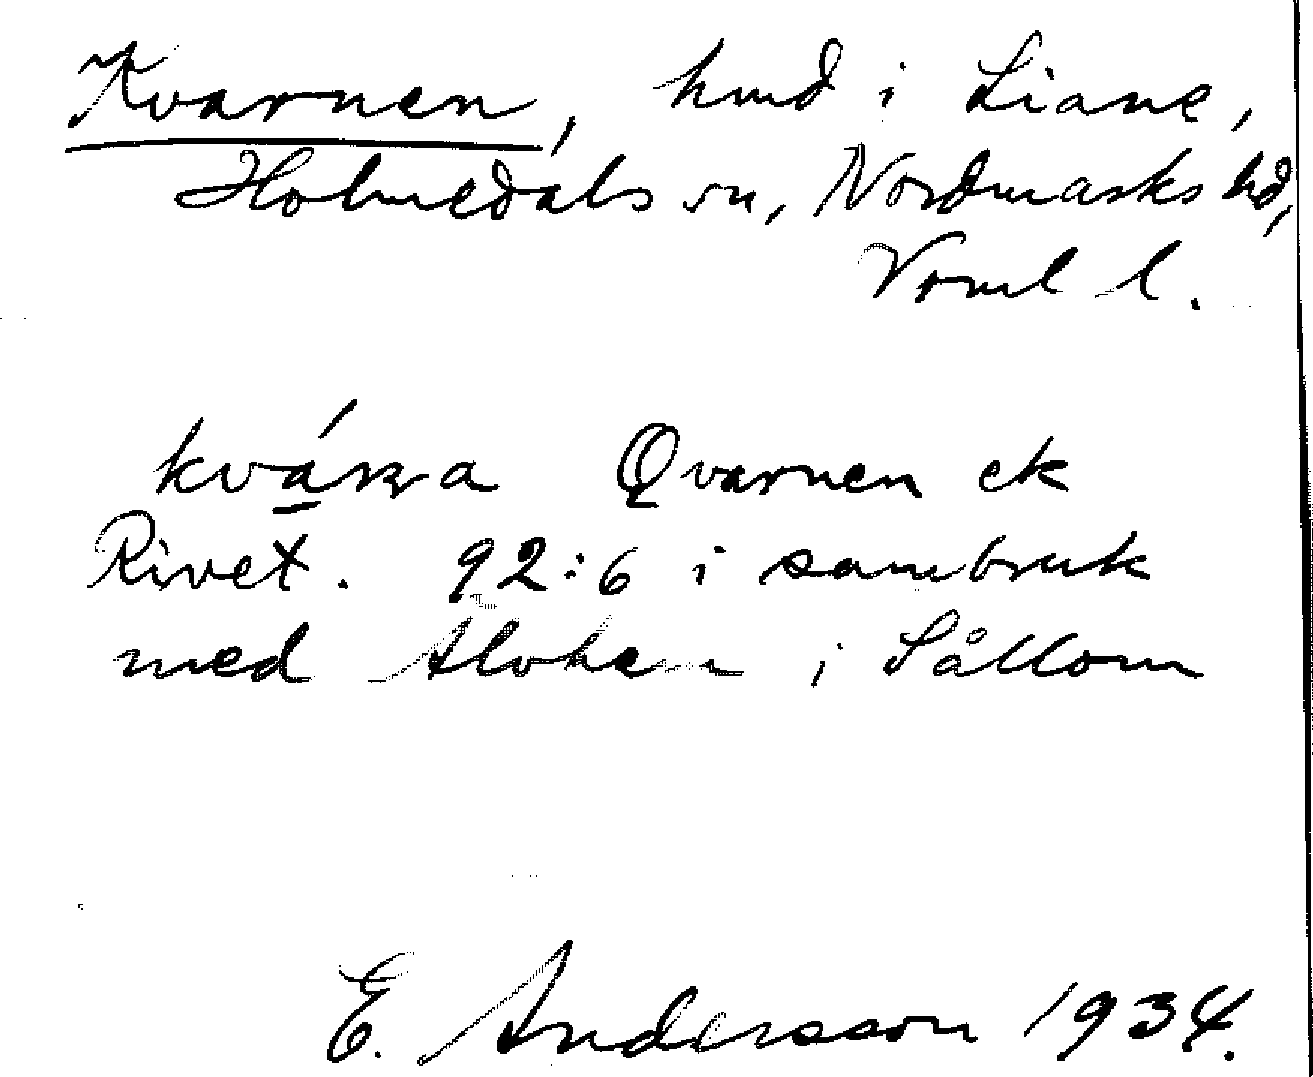 Kvarnen, hmd i Liane,
Holmedals sn, Nordmarks hd,
Vrml l.
Qvarnen ek
Rivet. 92:6 i sambruk
med i Sållom
E. Andersson 1934.